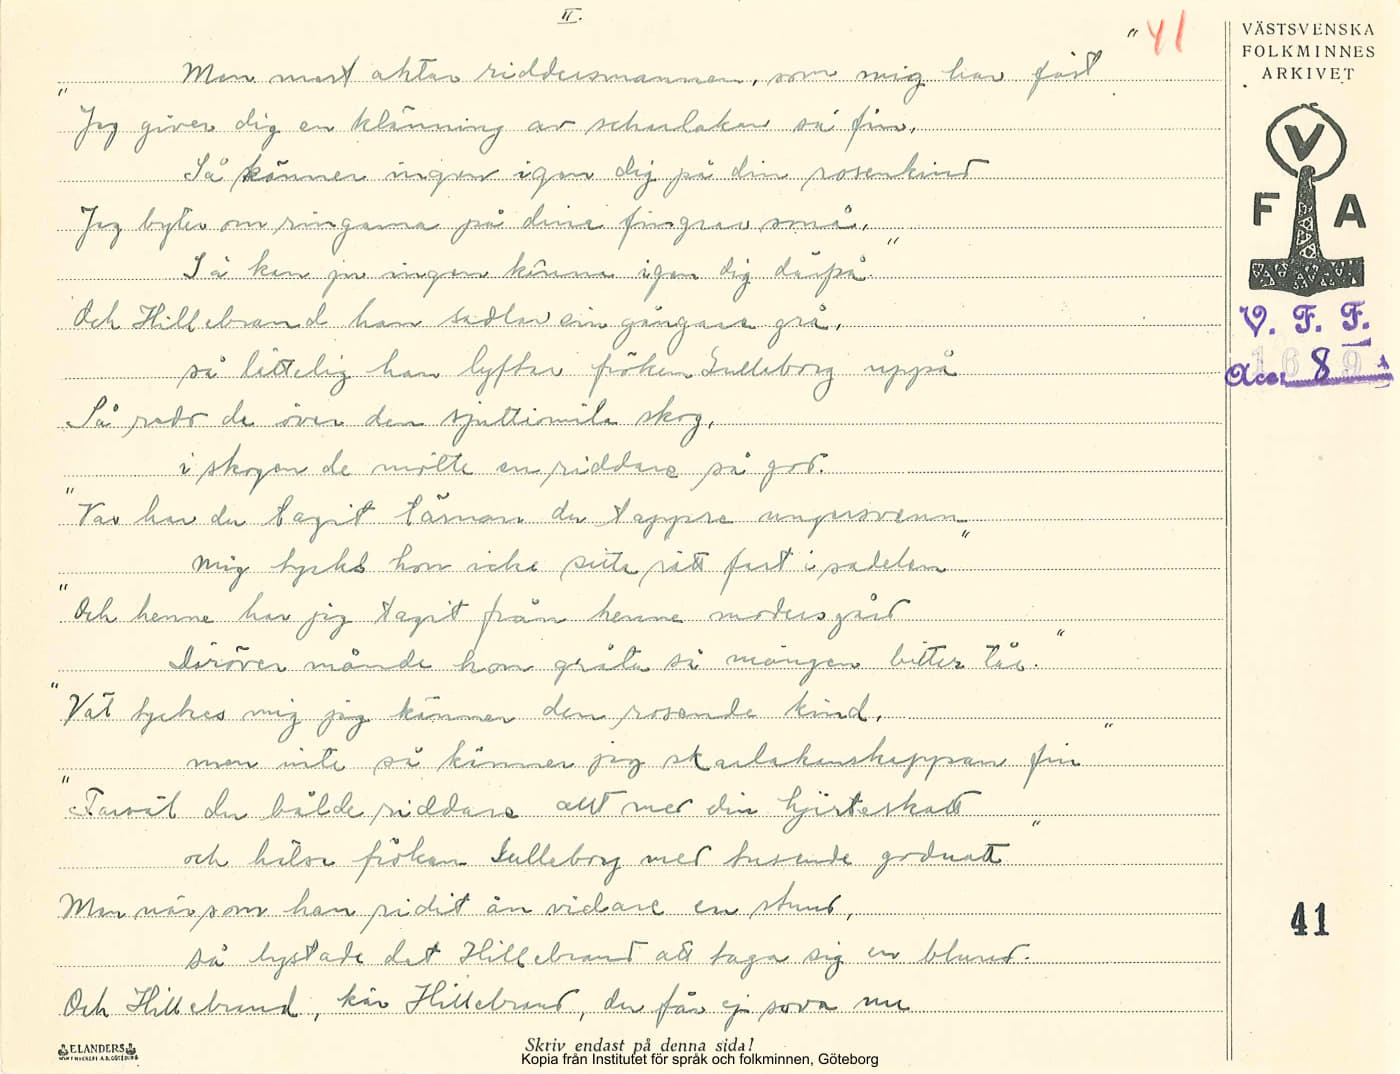 II.
41
Men mast aktar riddersmannen, som mig har fäst"
"Jag giver dig en klänning av scharlakan så fin,
Så känner ingen igen dig på din rosenkind
Jag byter om ringarna på dina fingrar små,
Så kan ju ingen känna igen dig därpå"
Och Hillebrand han sadlar sin gångare grå,
så lättelig han lyfter fröken Gulleborg uppå
Så redo de över den sjuttiomila skog,
i skogen de mötte en riddare så god.
"Var har du tagit tärnan du tappre ungersvenn
Mig tycks hon icke sitta rätt fast i sadelen"
"Och henne har jag tagit från henne modersgård
Däröver månde hon gråta så mången bitter tår."
"Väl tyckes mig jag känner den rosende kind,
men inte så känner jag skarlakanskappan fin"
"Farväl du bålde riddare allt med din hjärteskatt
och hälsa fröken Gulleborg med tusende godnatt"
Men när som han ridit än vidare en stund,
så lystade det Hillebrand att taga sig en blund.
Och Hillebrand, kär Hillebrand, du får ej sova nu
VÄSTSVENSKA
FOLKMINNES
ARKIVET
V
F A
V. F. F.
Acc. 1689
41
ELANDERS
Skriv endast på denna sida!
Kopia från Institutet för språk och folkminnen, Göteborg